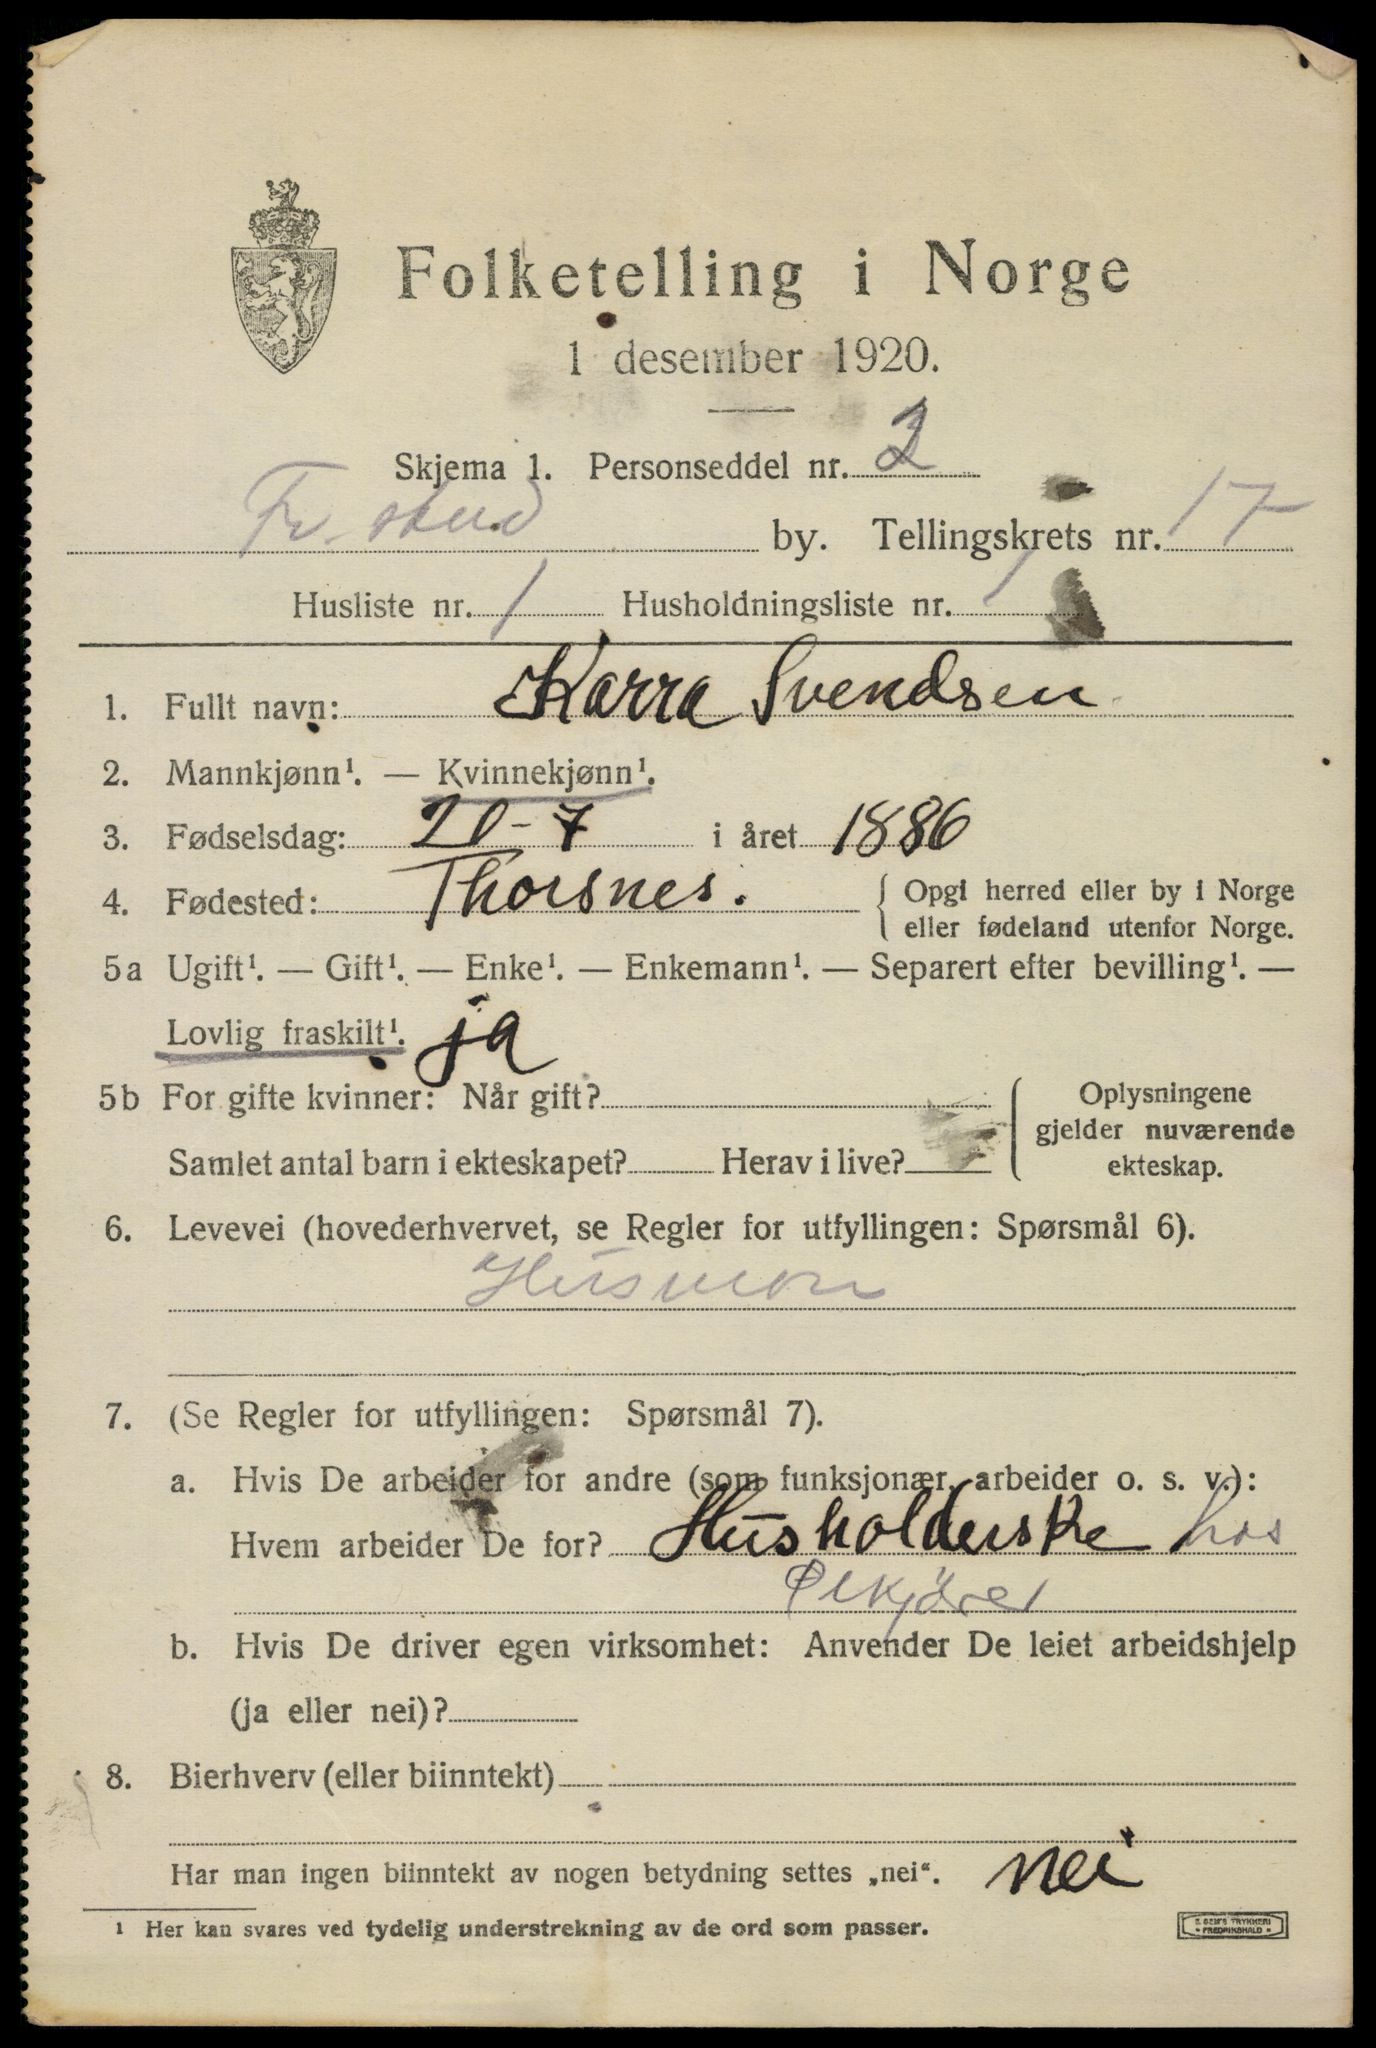 Folketelling i Norge
1 desember 1920.
Skjema 1. Personseddel nr. 2
Fr. stad by. Tellingskrets nr. 17
Husliste nr. 1 Husholdningsliste nr. 1
1. Fullt navn: Karra Svendsen
2. Mannkjønn¹. — Kvinnekjønn¹.
3. Fødselsdag: 20-7 i året 1886
4. Fødested: Thorsnes. { Opgi herred eller by i Norge
eller fødeland utenfor Norge.
5a Ugift¹. — Gift¹. — Enke¹. — Enkemann¹. — Separert efter bevilling¹. —
Lovlig fraskilt¹. ja
5b For gifte kvinner: Når gift? Oplysningene
gjelder nuværende
Samlet antal barn i ekteskapet? Herav i live? ekteskap.
6. Levevei (hovederhvervet, se Regler for utfyllingen: Spørsmål 6).
Husmor
7. (Se Regler for utfyllingen: Spørsmål 7).
a. Hvis De arbeider for andre (som funksjonær, arbeider o. s. v.):
Hvem arbeider De for? Husholderske hos
Ølkjører
b. Hvis De driver egen virksomhet: Anvender De leiet arbeidshjelp
(ja eller nei)?
8. Bierhverv (eller biinntekt)
Har man ingen biinntekt av nogen betydning settes „nei“. nei
¹ Her kan svares ved tydelig understrekning av de ord som passer.
E. SEM'S TRYKKERI
FREDRIKSHALD